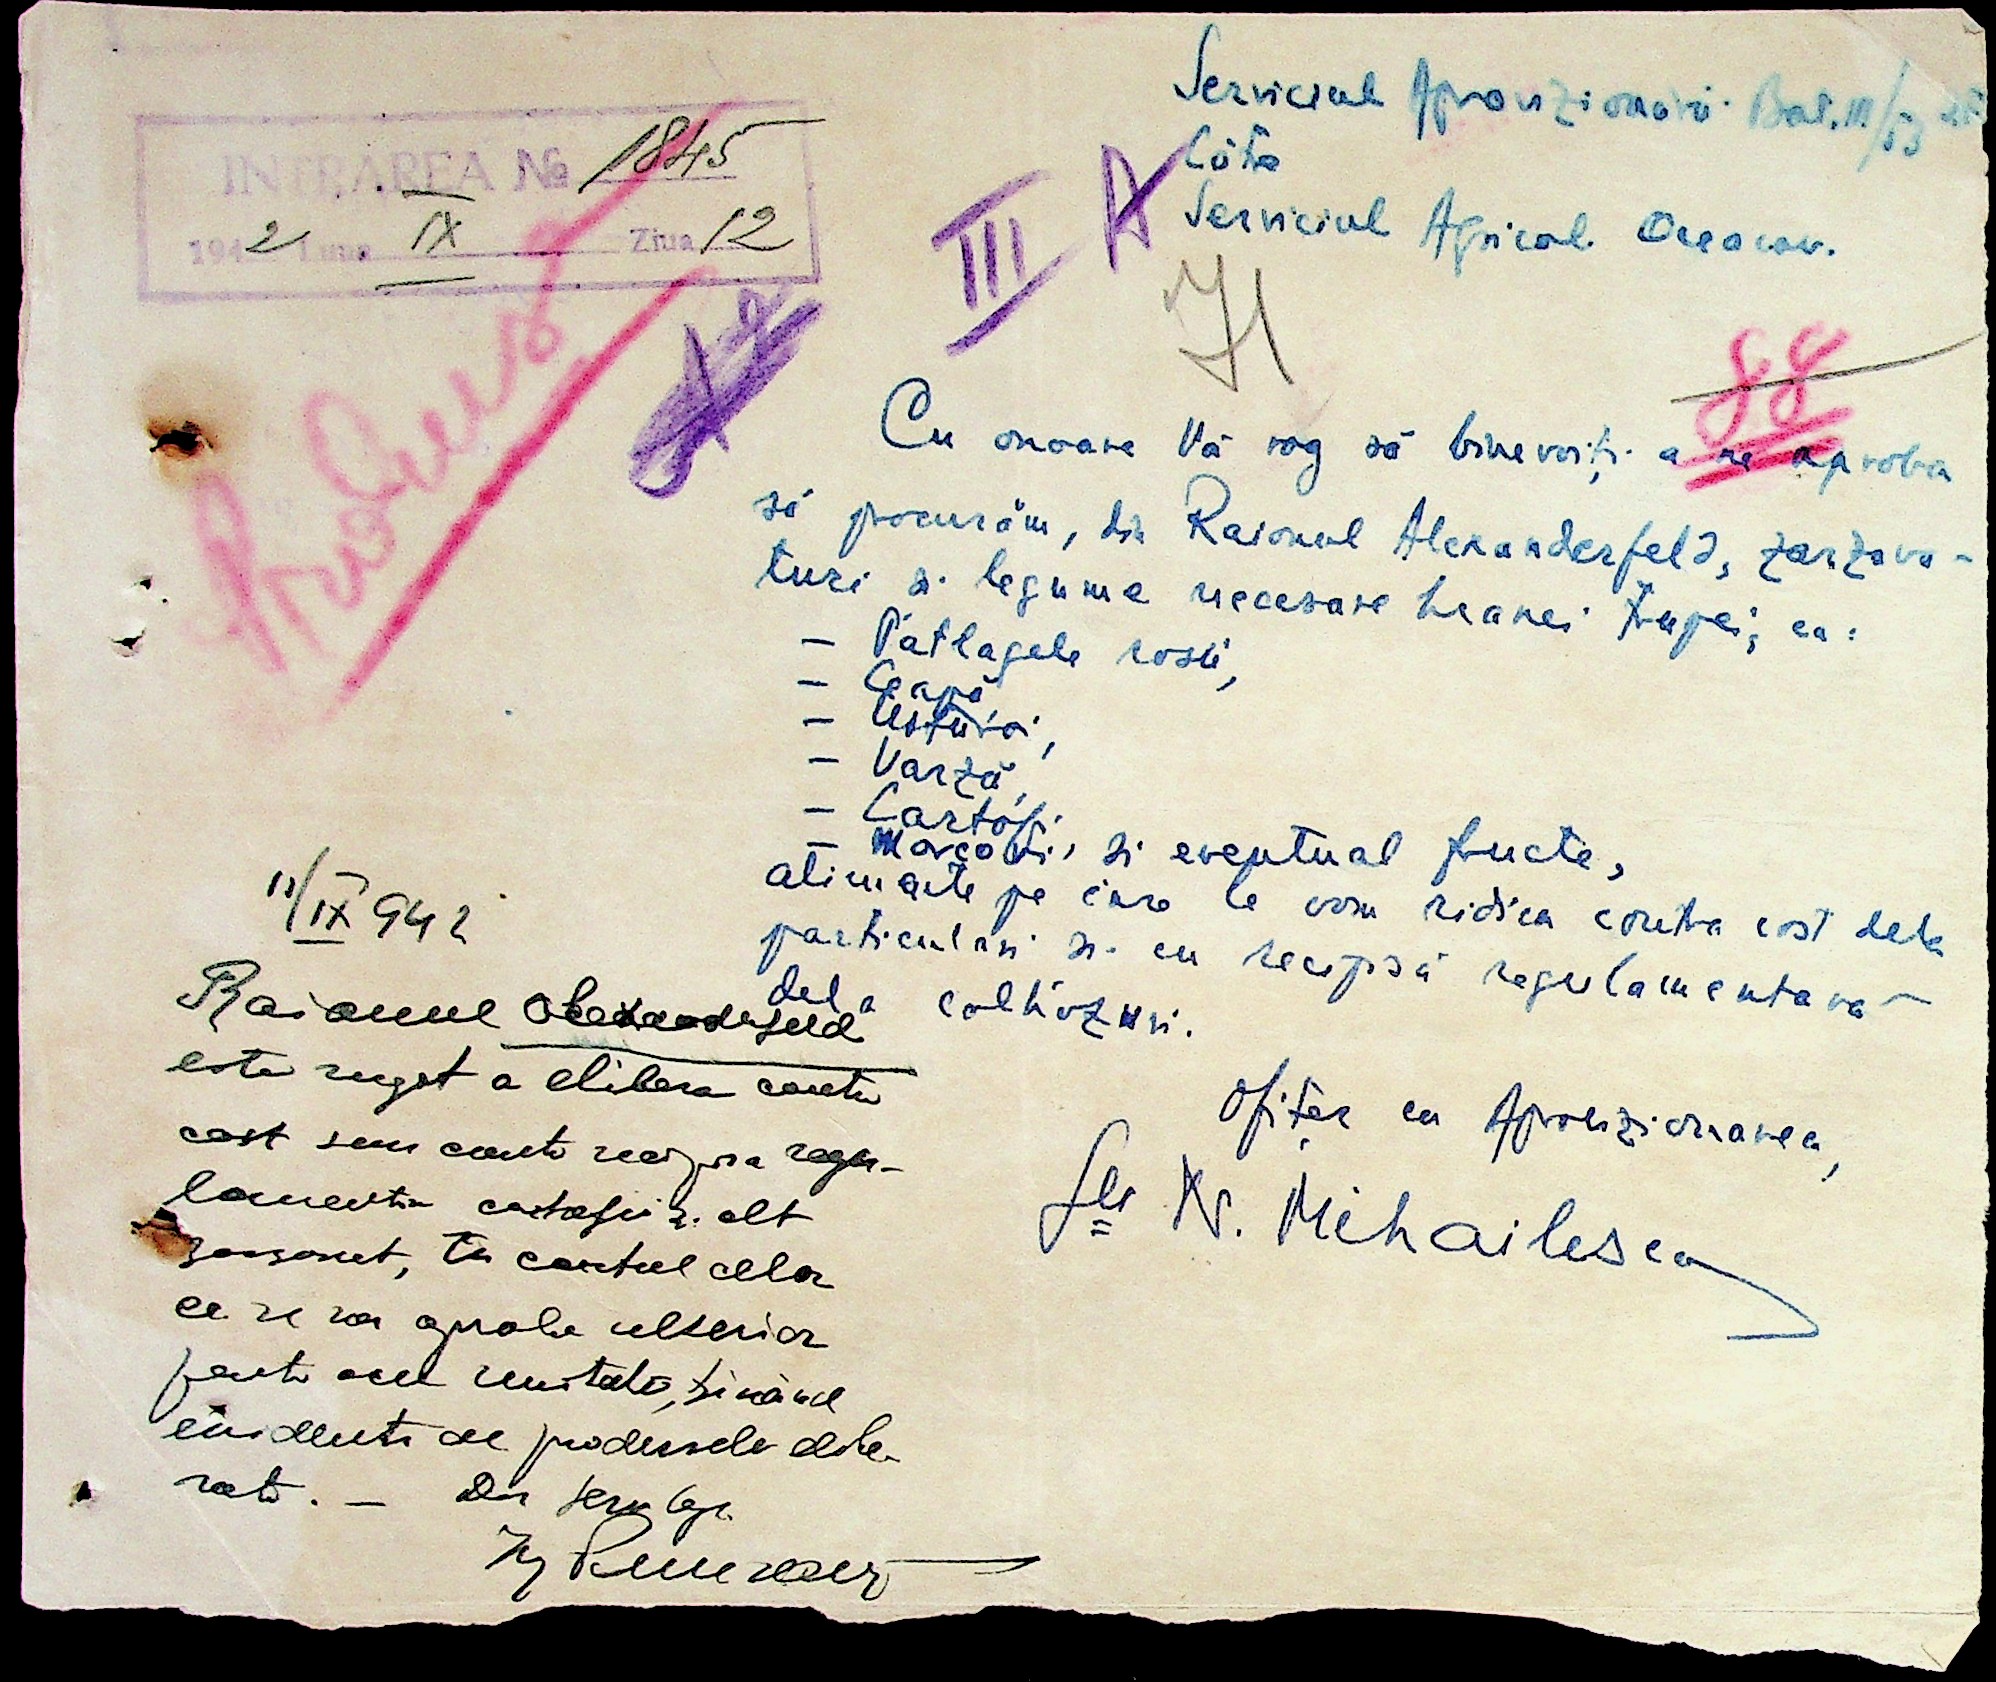 Serviciul Aprovizionării Bat. III/53
Către
Serviciul Agricol Oceacov.
INTRAREA № 1845
1942 Luna IX Ziua 12
III A
88
Cu onoare Vă rog să binevoiți a ne aproba
să procurăm, din Raionul Alexanderfeld, zarzava-
turi și legume necesare hranei trupei, ca:
- Pătlagele roșii,
- Ceapă
- Usturoi,
- Varză,
- Cartofi,
- Morcovi, și eventual fructe,
alimente pe care le vom ridica contra cost dela
particulari și cu recipisă regulamentară
dela colhozuri.
Ofițer cu Aprovizionarea,
N. Mihailescu
11/IX 942
Raionul Alexanderfeld
este rugat a elibera contra
cost sau contra recipisa regu-
lamentara cartofi și alt
zarzavat, în contul celor
ce se va aproba ulterior
pentru acea unitate, ținând
evidenta de produsele elibe-
rate. -